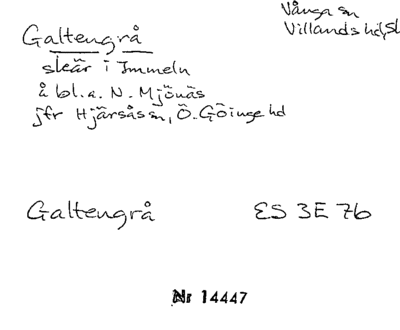 Vånga sn
Villands hd, Sk
Galtengrå
skär i Immeln
å bl.a. N. Mjönäs
jfr Hjärsås sn, Ö. Göinge hd
Galtengrå ES 3E 7b
Nr 14447